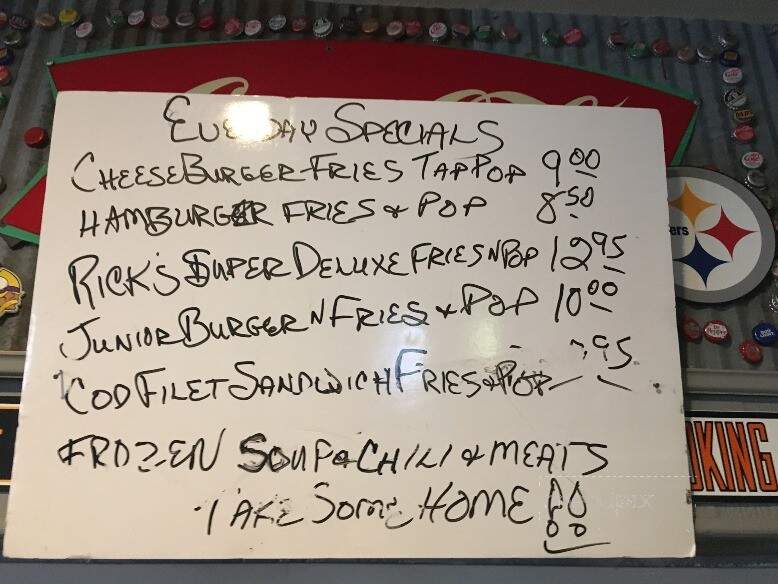 EVERYDAY SPECIALS
CHEESEBURGER-FRIES TAP POP 9.00
HAMBURGER FRIES & POP 8.50
RICK'S SUPER DELUXE FRIES N POP 12.95
JUNIOR BURGER N FRIES & POP 10.00
COD FILET SANDWICH FRIES & POP .95
FROZEN SOUP & CHILI & MEATS
TAKE SOME HOME !!
ers
OKING